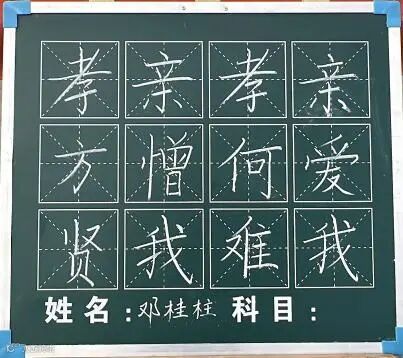 孝亲孝亲
方憎何爱
贤我难我
姓名:邓桂柱 科目: